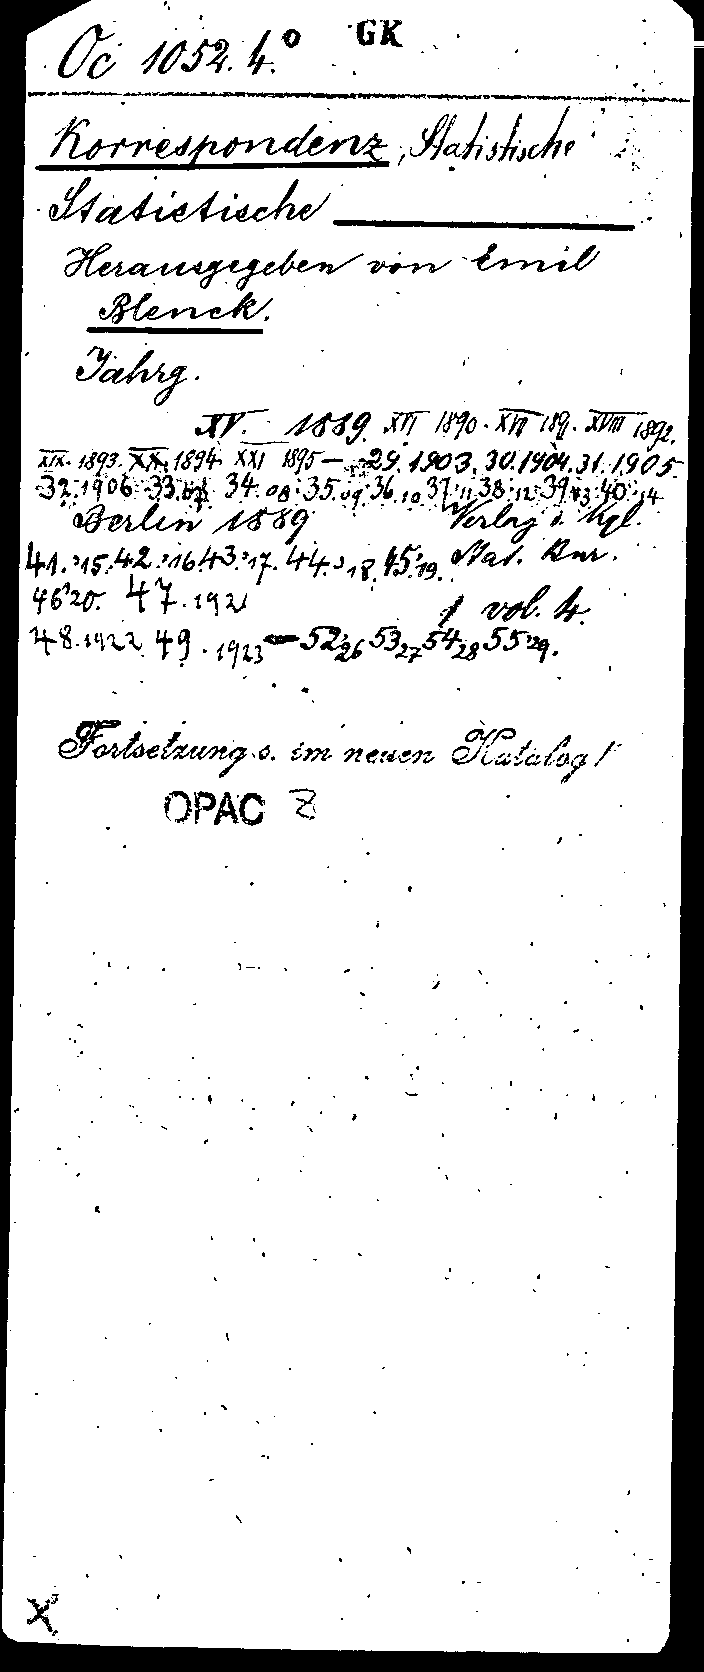 Oc 1052.4.° GK
Korrespondenz, Statistische
Statistische ————
Herausgegeben von Emil
Blenck.
Jahrg.
XV. 1889. XVI 1890. XVII 1891. XVIII 1892.
XIX. 1893. XX. 1894. XXI 1895 — 29. 1903. 30. 1904. 31. 1905.
32. 1906. 33. 07 34. 08. 35. 09. 36. 10 37. 11 38. 12 39. 13. 40. 14
Berlin 1889 Verlag d. Kgl.
41. 15. 42. 16. 43. 17. 44. 18. 45. 19. Stat. Bur.
46 20. 47. 1921
1 vol. 4.
48. 1922 49. 1923 — 52. 26 53 27 54 28 55 29.
Fortsetzung s. im neuen Katalog!
OPAC Z
X